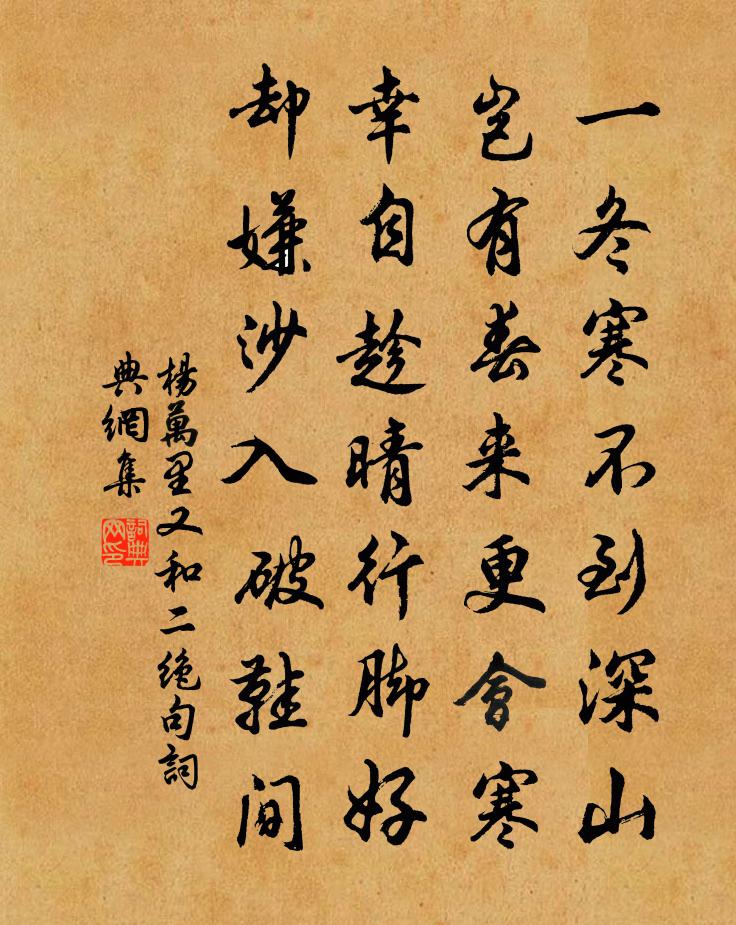 一冬寒不到深山
岂有春来更會寒
幸自趁晴行脚好
却嫌沙入破鞋间
楊萬里又和二绝句詞
典網集
詞典
网印